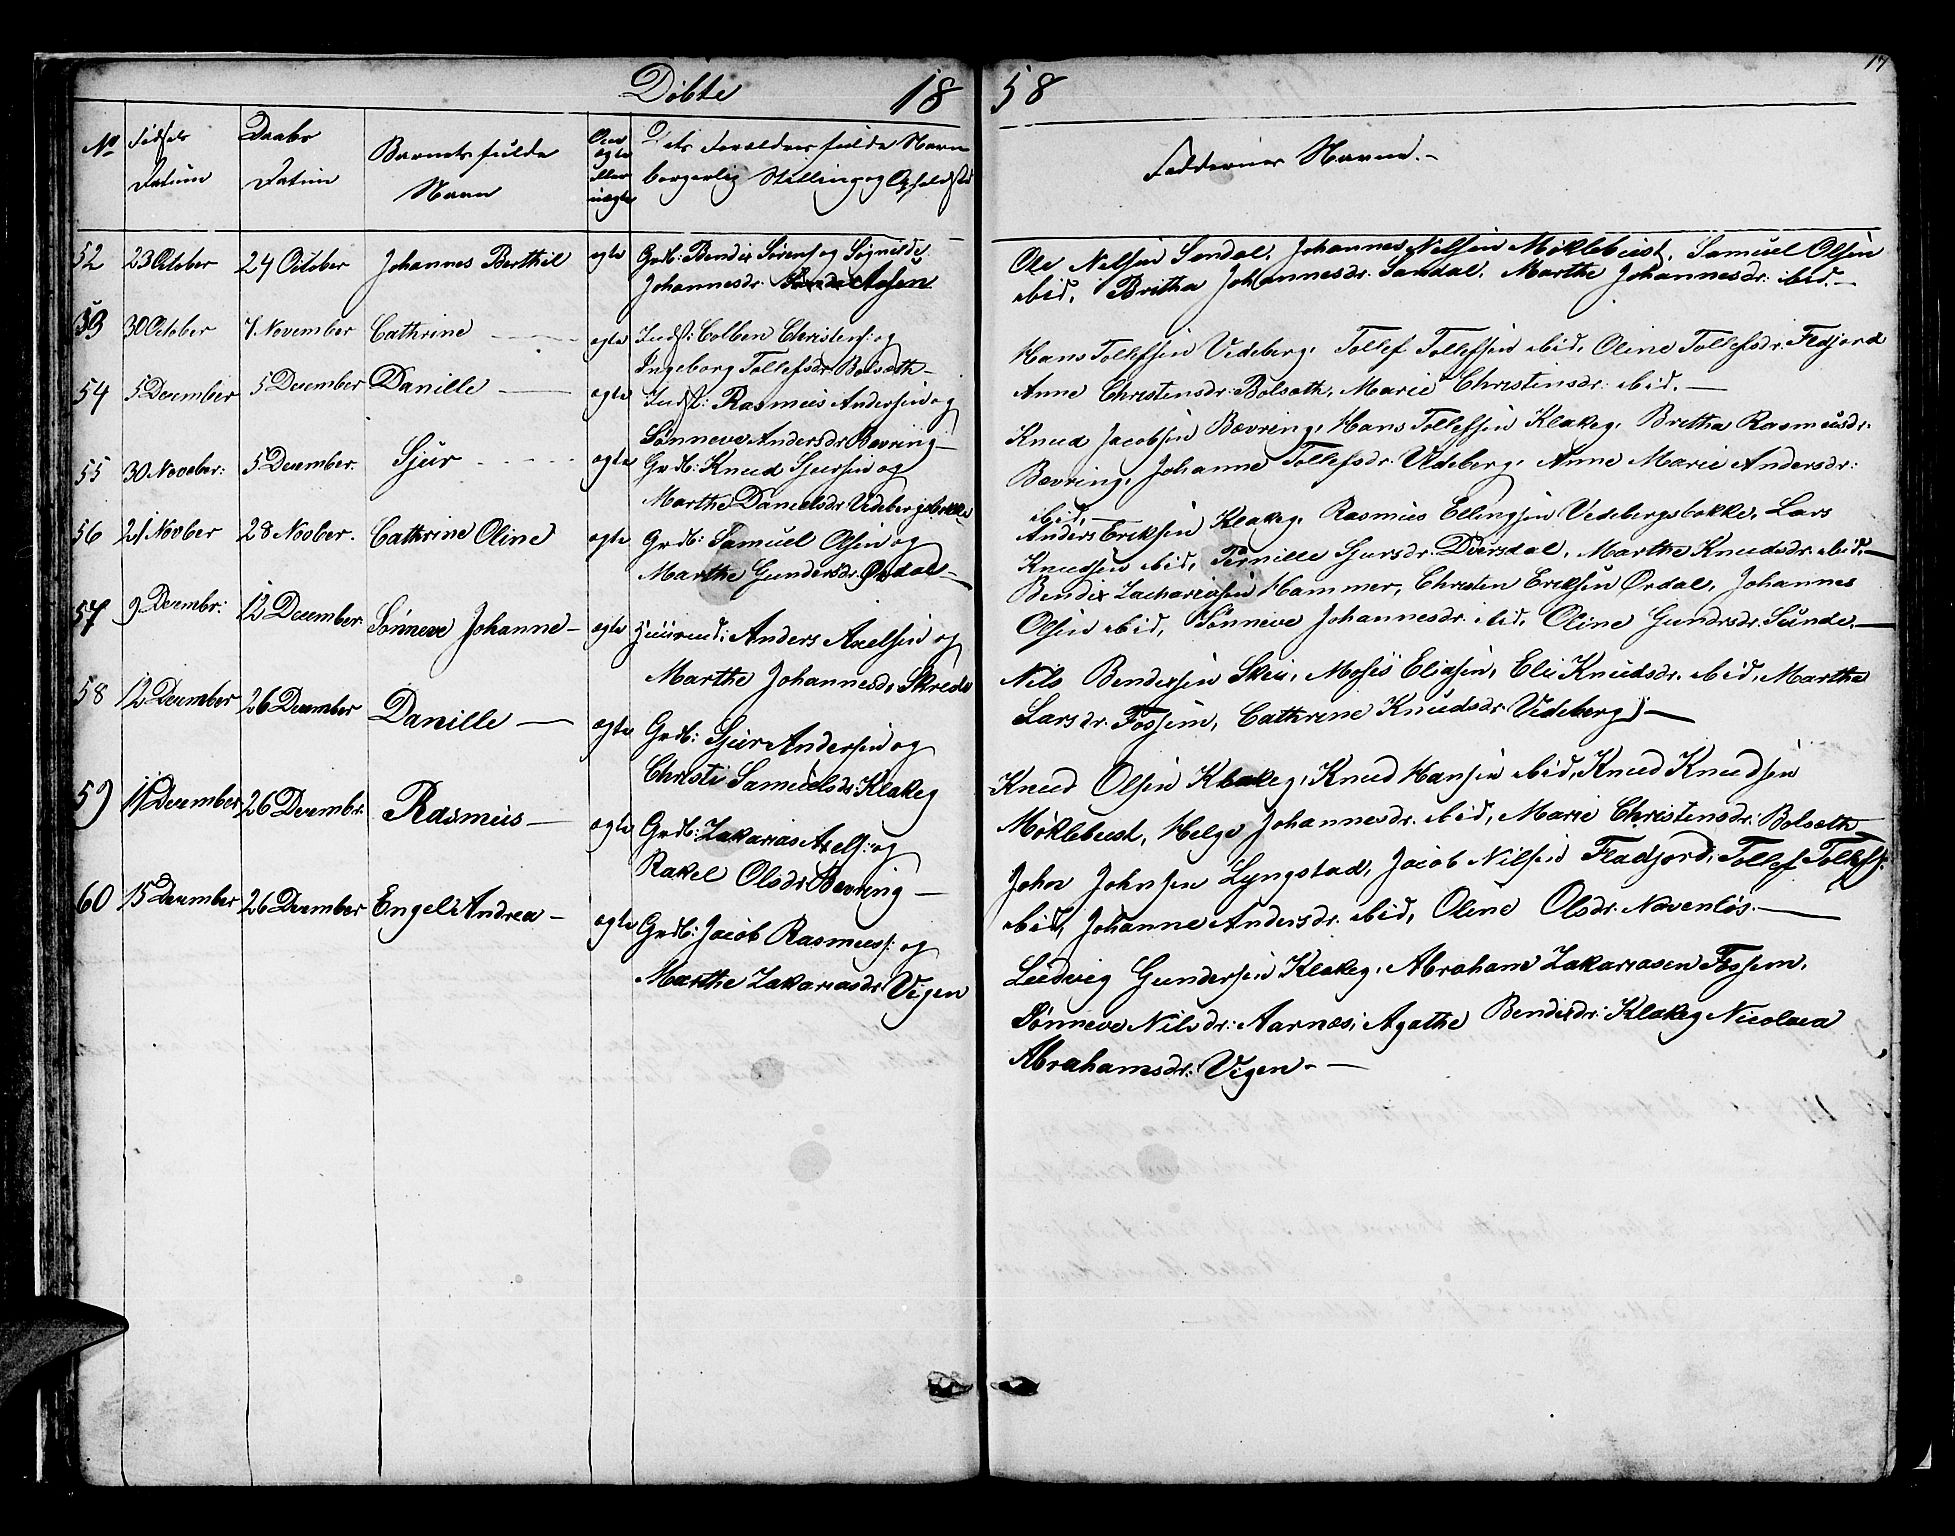 17
Döbte 18 58
No Fødsels Datum
Daabs Datum
Barnets fulde Navn
Om ægte eller uægte
Dets Forældres fulde Navn
borgerlig Stilling og Opholdsted
Faddernes Navne.-
52 23 October 24 October Johannes Berthil ægte Grdb: Bendix Sørens og Søgnilde
Johannesdr. Aasen
Ole Nilsen Sandal, Johannes Nilsen Møklebust, Samuel Olsen
ibid, Britha Johannesdr. Sandal, Marthe Johannesdr. ibid.-
53 30 October 7 November Cathrine ægte Inds: Colben Christens: og
Ingeborg Tollefsdr Bolsæth-
Hans Tollefsen Vedeberg, Tollef Tollefsen ibid, Oline Tollefsdr. Fladjord
Anne Christensdr: Bolsæth, Marie Christensdr: ibid.-
54 5 December 5 December Danille ægte Indst: Rasmus Andersen og
Sønneve Andersdr Bævring-
Knud Jacobsen Bævring, Hans Tollefsen Klakeg, Britha Rasmusdr:
Bævring, Johanne Tollefsdr. Vedeberg, Anne Marie Andersdr:
ibid.-
55 30 Novber: 5 December. Sjur ægte Grdb: Knud Sjursen og
Marthe Danielsdr Vedebergsbrække
Anders Eriksen Klakeg, Rasmus Ellingsen Vedebergsbakke, Lars
Knudsen ibid, Pernille Sjursdr. Dvergsdal, Marthe Knudsdr. ibid.-
56 21 Novber 28 Novber. Cathrine Oline ægte Grdb: Samuel Olsen og
Marthe Gundersdr. Ørdal-
Bendix Zachariasen Hammer, Christen Eriksen Ørdal, Johannes
Olsen ibid, Sønneve Johannesdr. ibid, Oline Gundrsdr. Sunde.-
57 9 Decembr: 12 December Sønneve Johanne- ægte Anders Axelsen og
Marthe Johannesdr Skrede
Nils Bendixsen Skei, Moses Eliasen, Eli Knudsdr. ibid, Marthe
Larsdr. Fossem, Cathrine Knudsdr Vedeberg.-
58 12 December 26 December Danille- ægte Grdb: Sjur Andersen og
Christi Samuelsdr Klakeg
Knud Olsen Klakeg, Knud Hansen ibid, Knud Knudsen
Møklebust, Helge Johannesdr. ibid, Marie Christensdr: Bolsæth
59 11 December 26 Decembr. Rasmus- ægte Grdb: Zakarias Axels: og
Rakel Olsdr. Bævring-
John Johnsen Lyngstad, Jacob Nilsen Fladjord, Tollef Tollefs:
ibid, Johanne Andersdr. ibid, Oline Olsdr. Navenløs.-
60 15 December 26 December Engel Andrea- ægte Grdb: Jacob Rasmuss: og
Marthe Zakariasdr Vigen
Ludvig Gundersen Klakeg, Abraham Zakariasen Fossem,
Sønneve Nilsdr: Aarnæs, Agathe Bendixdr: Klakeg Nicolaea
Abrahamsdr: Vigen.-